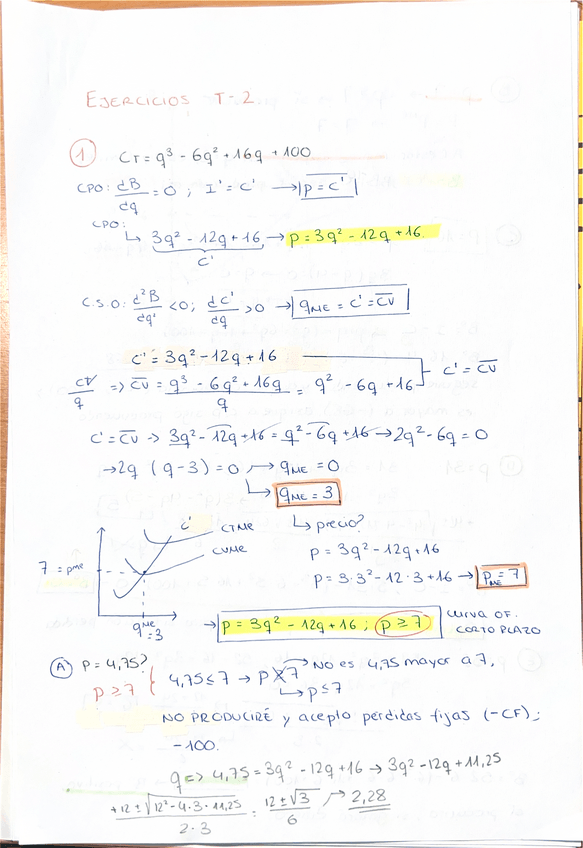 EJERCICIOS T-2.
① CT = q³ - 6q² + 16q + 100
CPO: dB/dq = 0 ; I' = C' → p = C'
CPO:
↳ 3q² - 12q + 16 → p = 3q² - 12q + 16.
C'
C.S.O: d²B/dq² < 0; dC'/dq > 0 → qME = C' = CV
C' = 3q² - 12q + 16
CV/q => CV = q³ - 6q² + 16q / q = q² - 6q + 16
C' = CV
C' = CV → 3q² - 12q + 16 = q² - 6q + 16 → 2q² - 6q = 0
→ 2q (q - 3) = 0 → qME = 0
↳ qME = 3
↳ precio?
p = 3q² - 12q + 16
p = 3·3² - 12·3 + 16 → PME = 7
C' CTME
CVME
7 = PME
qME = 3
→ p = 3q² - 12q + 16 ; p ≥ 7
CURVA OF. CORTO PLAZO
Ⓐ P = 4,75?
p ≥ 7
4,75 ≤ 7 → p ≥ 7 → NO es 4,75 mayor a 7,
↳ p ≤ 7
NO PRODUCIRÉ y acepto pérdidas fijas (-CF);
-100.
q => 4,75 = 3q² - 12q + 16 → 3q² - 12q + 11,25
+12 ± √12² - 4·3·11,25 / 2·3 = 12 ± √3 / 6 → 2,28